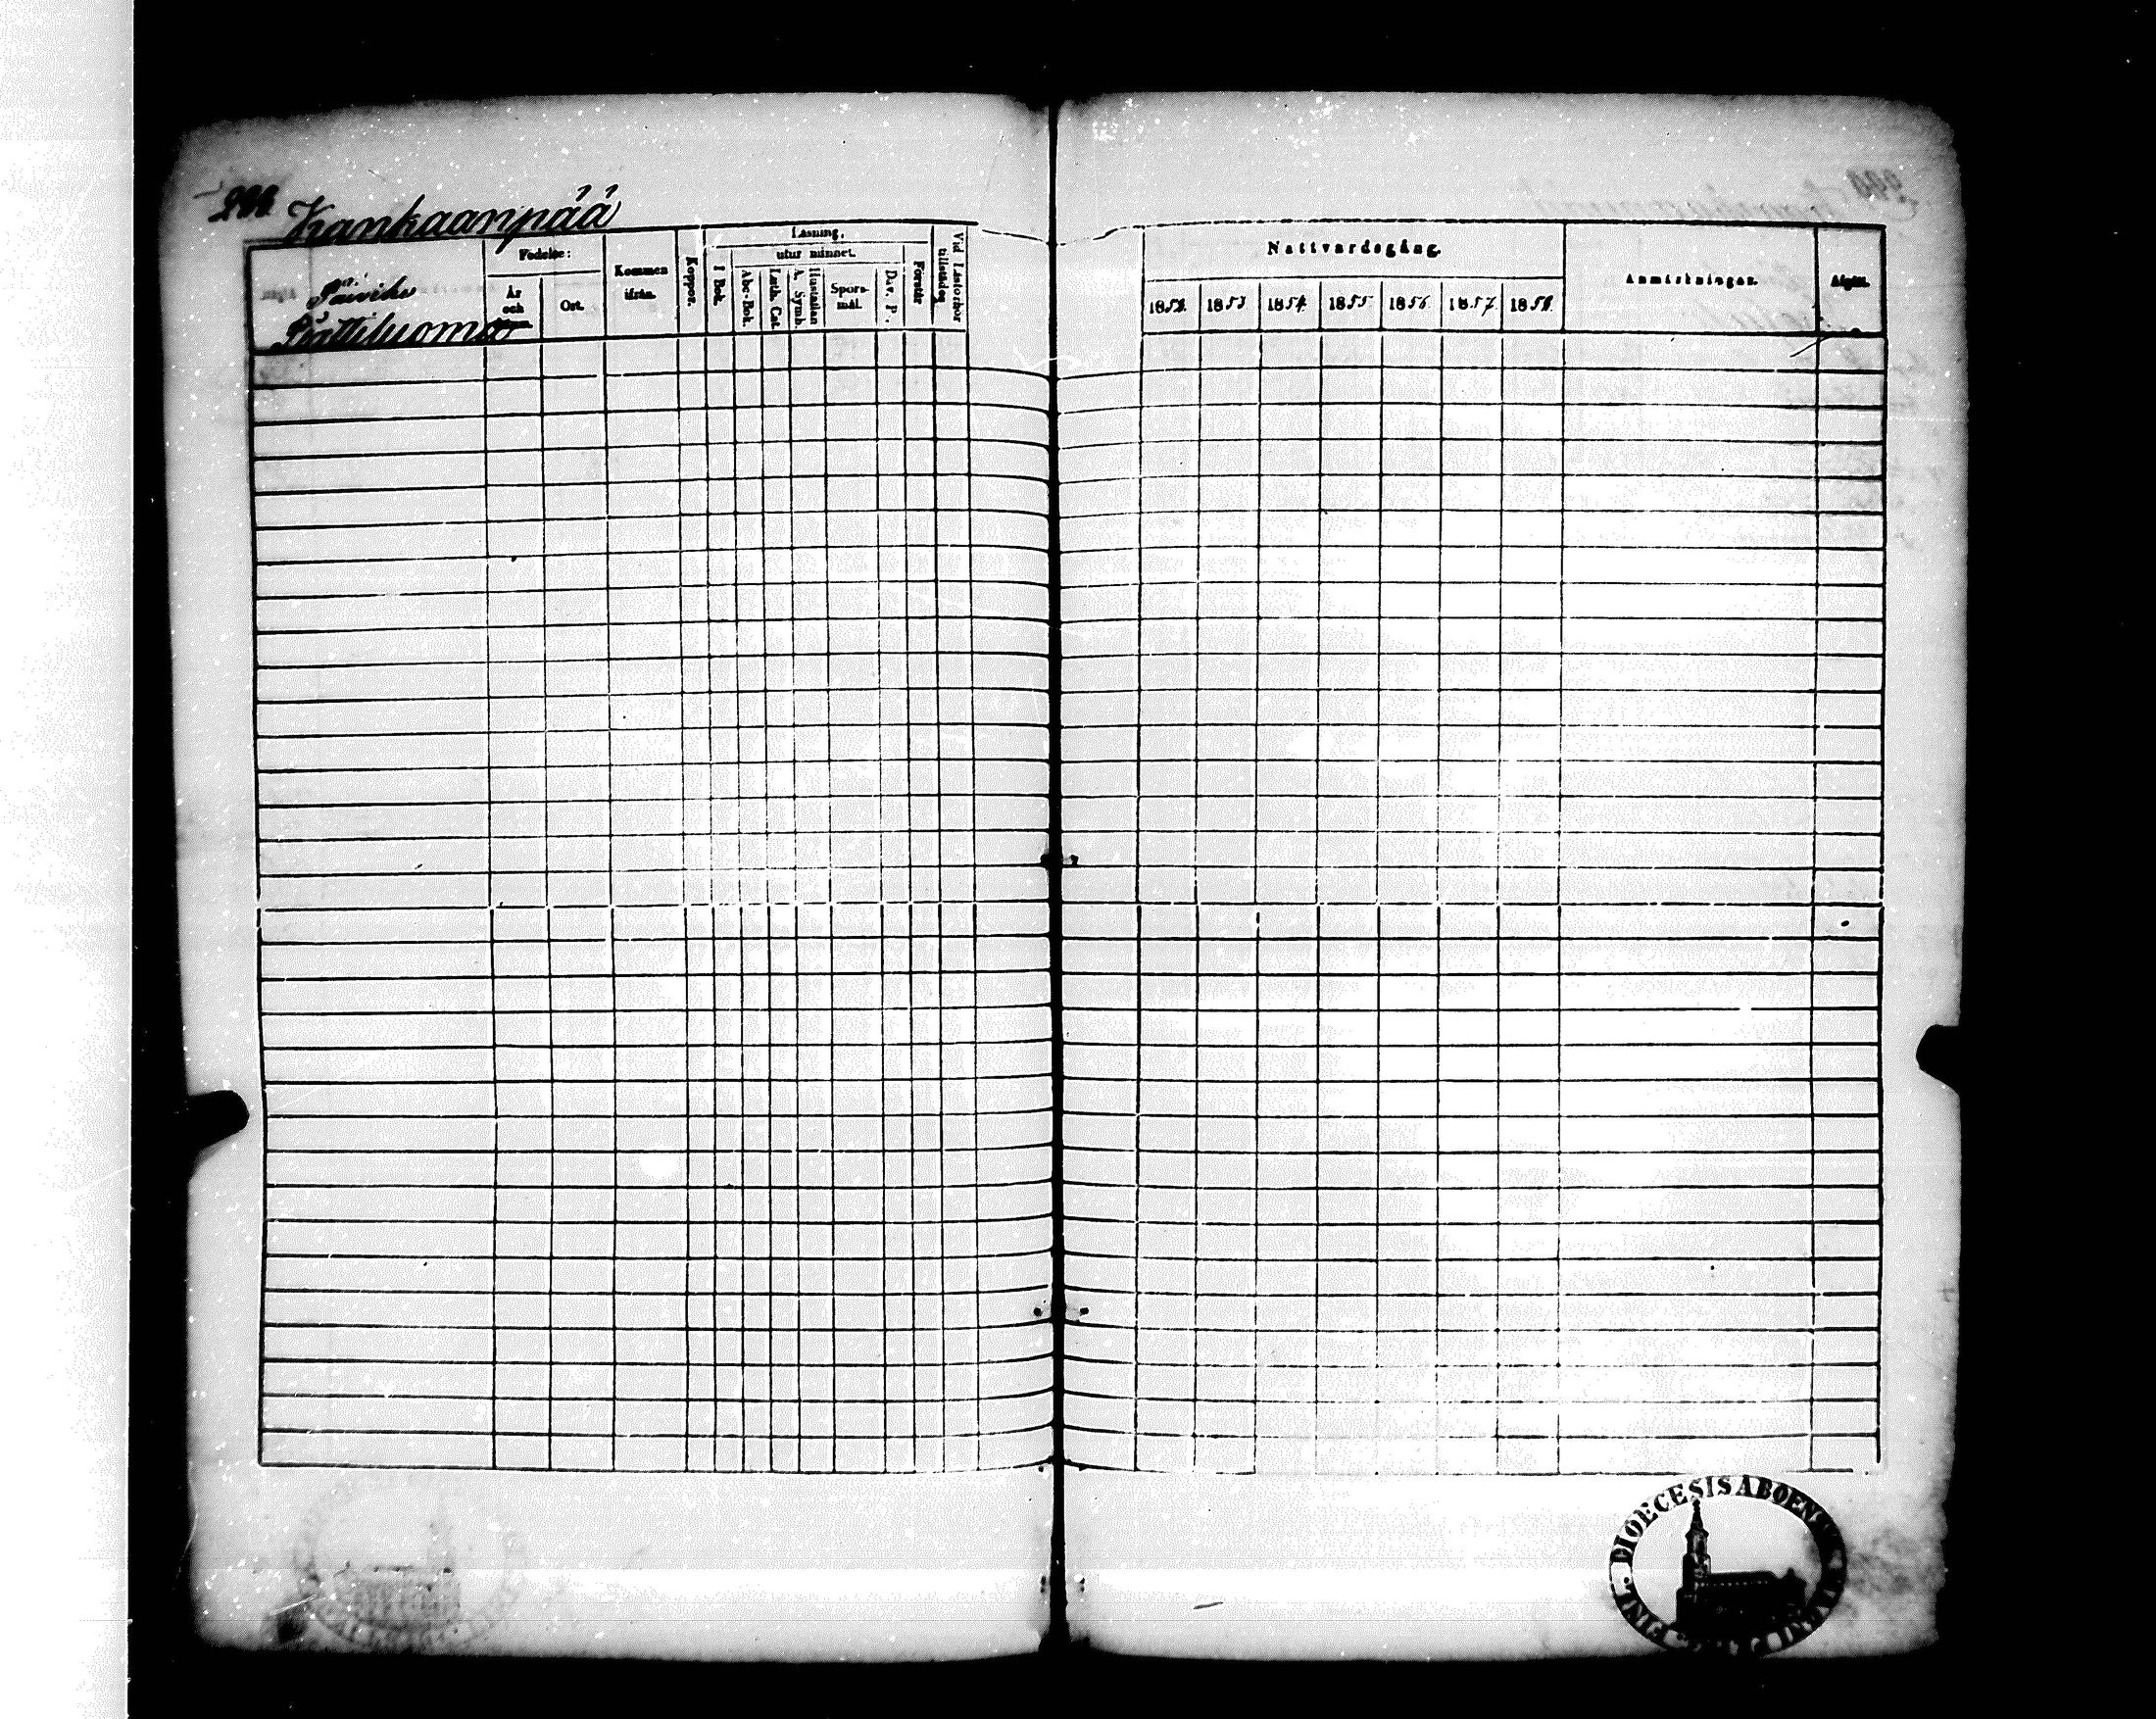 Kankaanpää
Födelse:
Läsning,
utur minnet.
Kommen
ifrån.
Koppor.
I Bok.
Abc-Bok.
Luth. Cat.
Hustaflan
A. Symb.
Spörs-
mål.
Dav. P.
Förstår
Vid Läseförhör
tillstädes
År
och
Ort.
Nattvardsgång.
1852. 1853. 1854. 1855 1856. 1857. 1858.
Anmärkningar.
Afgått.
DIOECESIS ABOENSIS